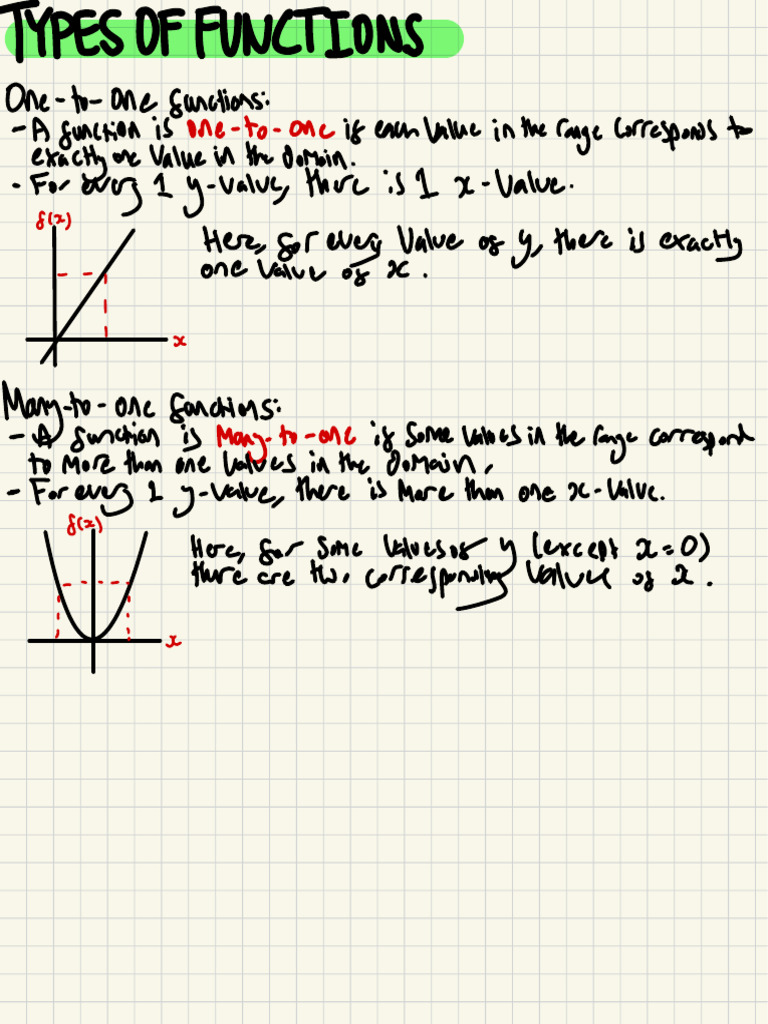 TYPES OF FUNCTIONS
One-to-one functions:
- A function is one-to-one if each value in the range corresponds to
exactly one value in the domain.
- For every 1 y-value, there is 1 x-value.
f(x)
Here, for every value of y, there is exactly
one value of x.
x
Many-to-one functions:
- A function is Many-to-one if some values in the range correspond
to more than one values in the domain.
- For every 1 y-value, there is more than one x-value.
f(x)
Here, for some values of y (except x=0)
there are two corresponding values of x.
x